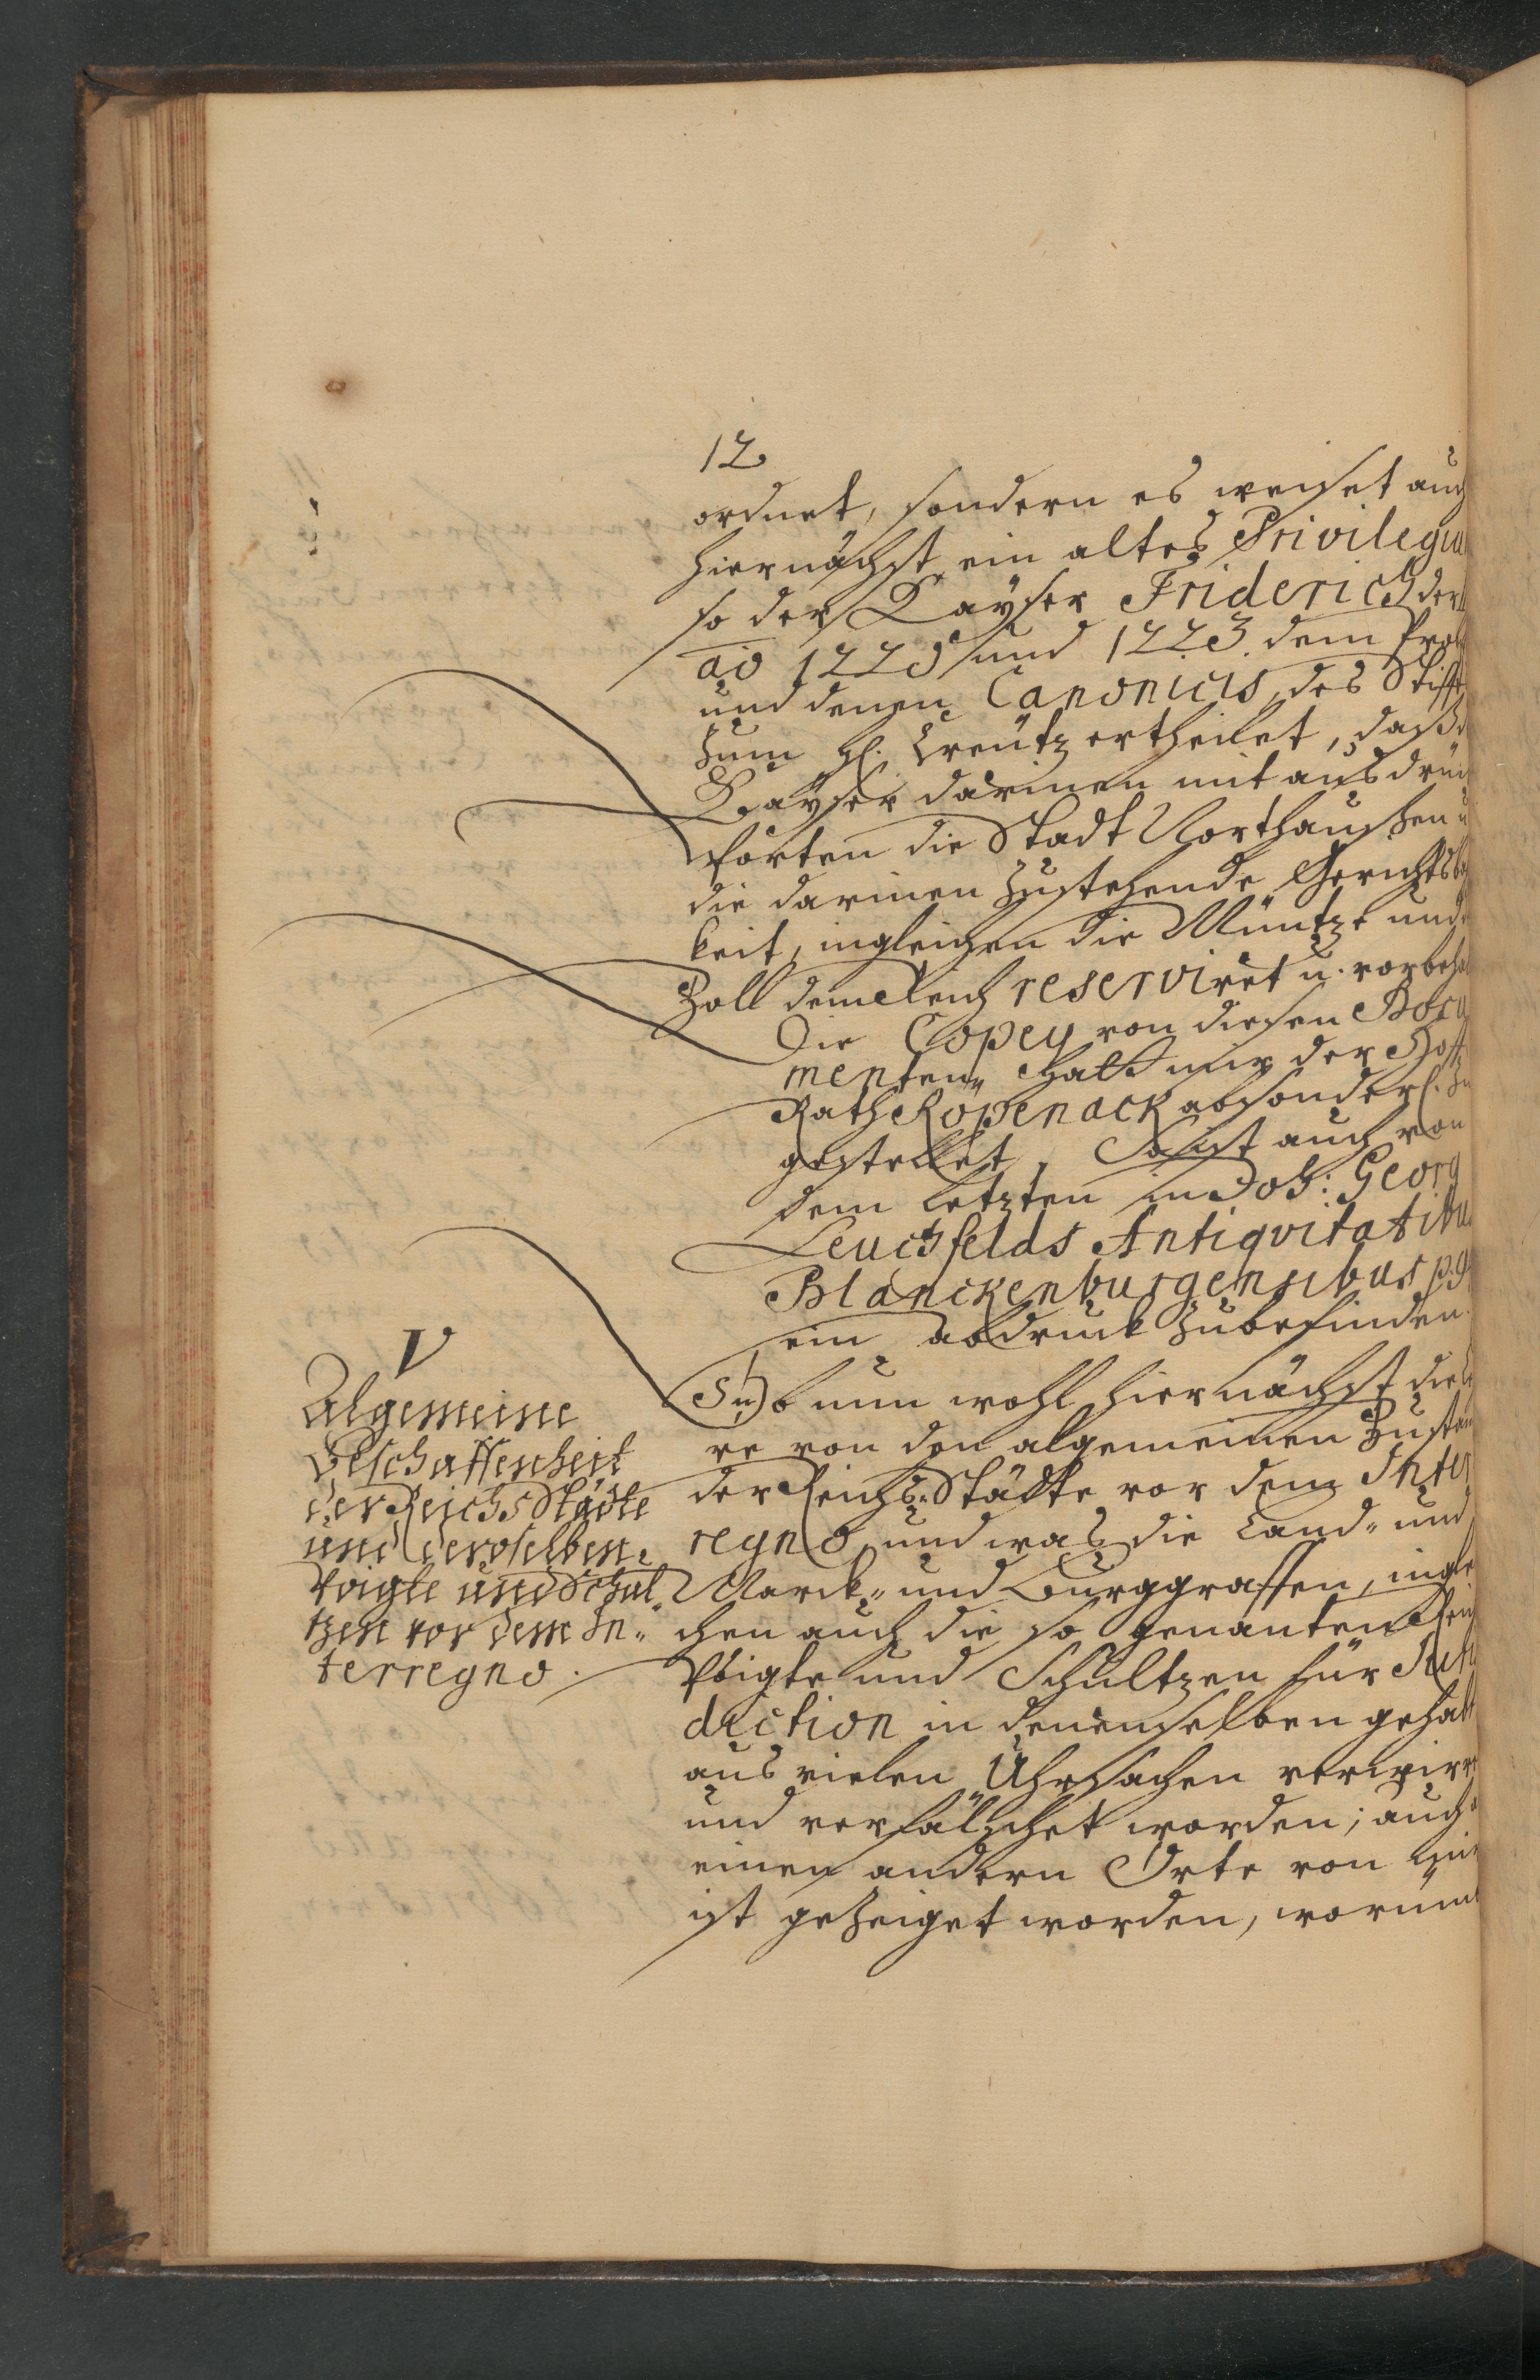 12
ordnet, sondern es weiset auch
hiernächst ein altes Privilegiu
so der Kayser Friderich der
ao 1220 und 1223. dem Prob
und denen Canonicis des Stifft
zum hl. Creütz ertheilet, daß
Kayser darinen mit ausdrück
Worten die Stadt Northaußen u
die darinen zustehende Gerichtsb
keit, ingleichen die Müntze und
Zoll dem Reich reserviret u. vorbeha
Die Copey von diesen Docu
menten hatt mir der Hoff
Rath Röpenack absonderl. zu
gestellet, Es ist auch von
dem Letzten in Joh: Georg
Leuchfelds Antiqvitatibus
Blanckenburgensibus p. 9
ein abdruck zubefinden.
V
Algemeine
Beschaffenheit
der ReichsStädte
und deroselben
Voigte und Schul„
tzen vor dem In„
terregno.
Ob nun wohl hiernächst die Le
re von den algemeinen Zustan
der Reichs-Städte vor dem Inter
regno, und was die Land- und
Marck- und Burggraffen, inglei
chen auch die so genanten Reich
Voigte und Schultzen für Juris
diction in denenselben gehabt
aus vielen Uhrsachen verwirr
und verfälschet worden; auch
einen andern Orte von mir
ist gezeiget worden, worüm